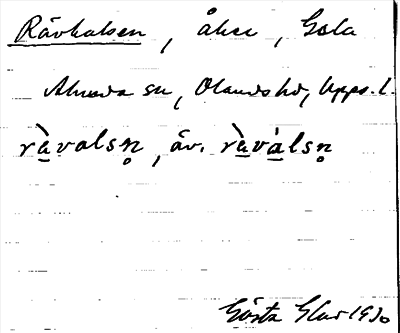 Rävhalsen, åker, Gola
Almunge sn, Olands hd, Upps. l.
rà̱valsn̥, äv. rà̱vá̱lsn̥
Gösta 1910